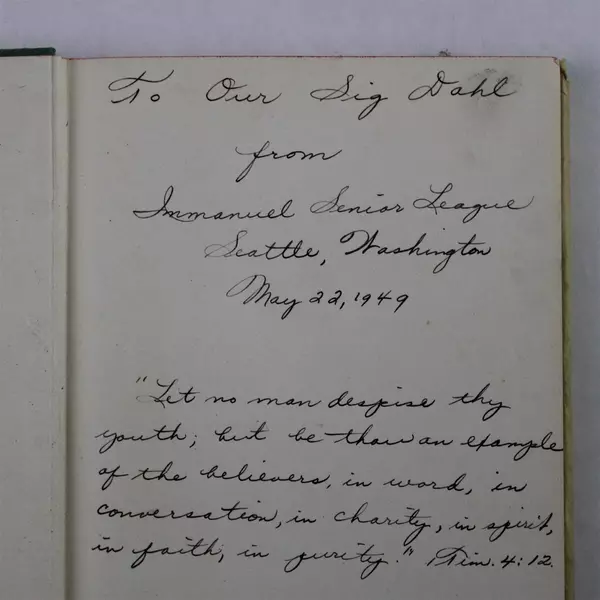 To Our Sig Dahl
from
Immanuel Senior League
Seattle, Washington
May 22, 1949
"Let no man despise thy
youth; but be thou an example
of the believers, in word, in
conversation, in charity, in spirit,
in faith, in purity." I Tim. 4:12.